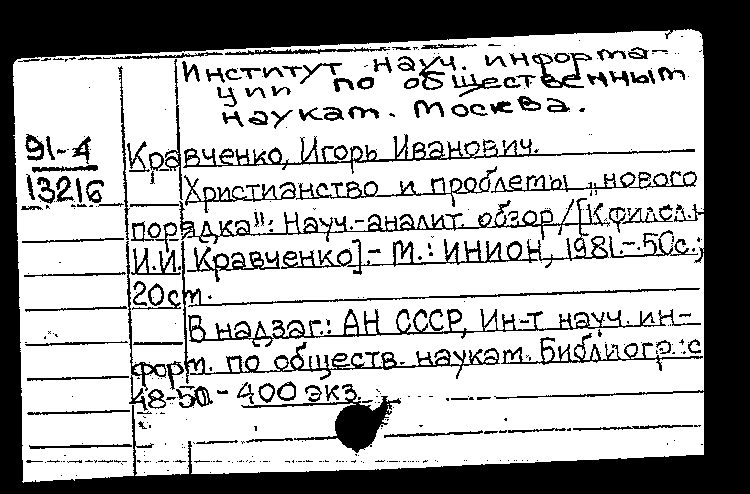 Институт науч. информа-
ции по общественным
наукам. Москва.
91-4
13216
Кравченко, Игорь Иванович.
Христианство и проблемы „нового
порядка": Науч.-аналит. обзор/[К.филос.н
И.И. Кравченко].- М.: ИНИОН, 1981.-50с.;
20см.
В надзаг.: АН СССР, Ин-т науч. ин-
форм. по обществ. наукам. Библиогр.:с
48-50.- 400 экз.